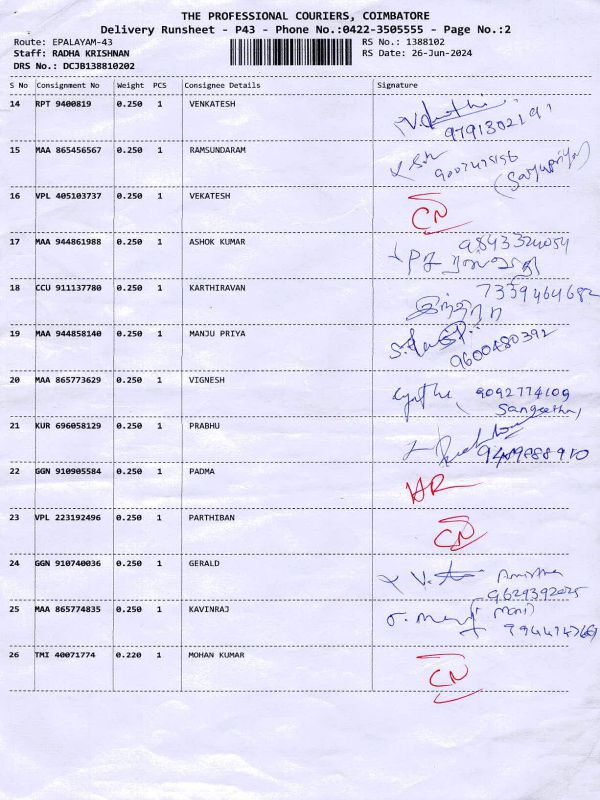 THE PROFESSIONAL COURIERS, COIMBATORE
Delivery Runsheet - P43 - Phone No.:0422-3505555 - Page No.:2
Route: EPALAYAM-43 RS No.: 1388102
Staff: RADHA KRISHNAN RS Date: 26-Jun-2024
DRS No.: DCJB138810202
S No Consignment No Weight PCS Consignee Details Signature
14 RPT 9400819 0.250 1 VENKATESH
15 MAA 865456567 0.250 1 RAMSUNDARAM
16 VPL 405103737 0.250 1 VEKATESH CN
17 MAA 944861988 0.250 1 ASHOK KUMAR 9843324054
18 CCU 911137780 0.250 1 KARTHIRAVAN 7339464682
19 MAA 944858140 0.250 1 MANJU PRIYA 9600480392
20 MAA 865773629 0.250 1 VIGNESH 9092774109
Sangeetha
21 KUR 696058129 0.250 1 PRABHU 9489888910
22 GGN 910905584 0.250 1 PADMA
23 VPL 223192496 0.250 1 PARTHIBAN CN
24 GGN 910740036 0.250 1 GERALD
9629392025
25 MAA 865774835 0.250 1 KAVINRAJ
26 TMI 40071774 0.220 1 MOHAN KUMAR CN